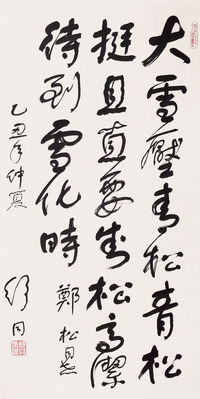 大雪壓青松青松
挺且直要知松高潔
待到雪化時 鄭松
乙丑年仲夏
舒同